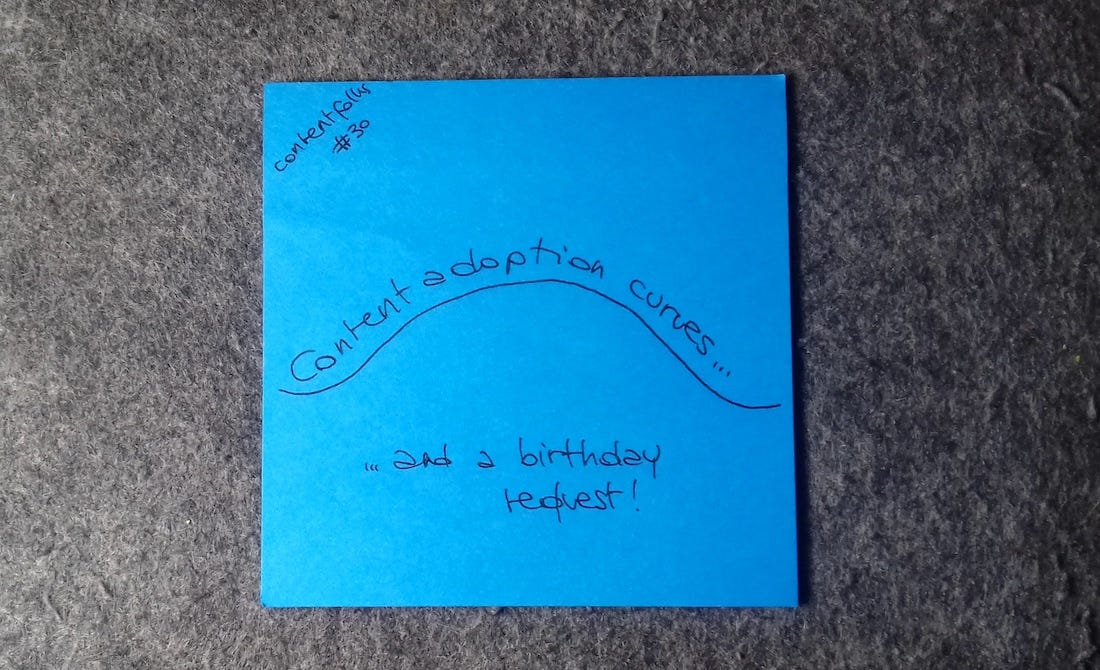 contentfolks
#30
Content adoption curves...
... and a birthday
request!